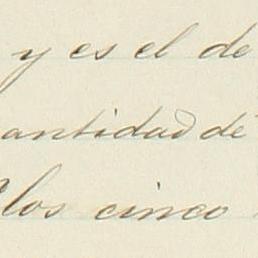 y es el de
antidad de
los cinco